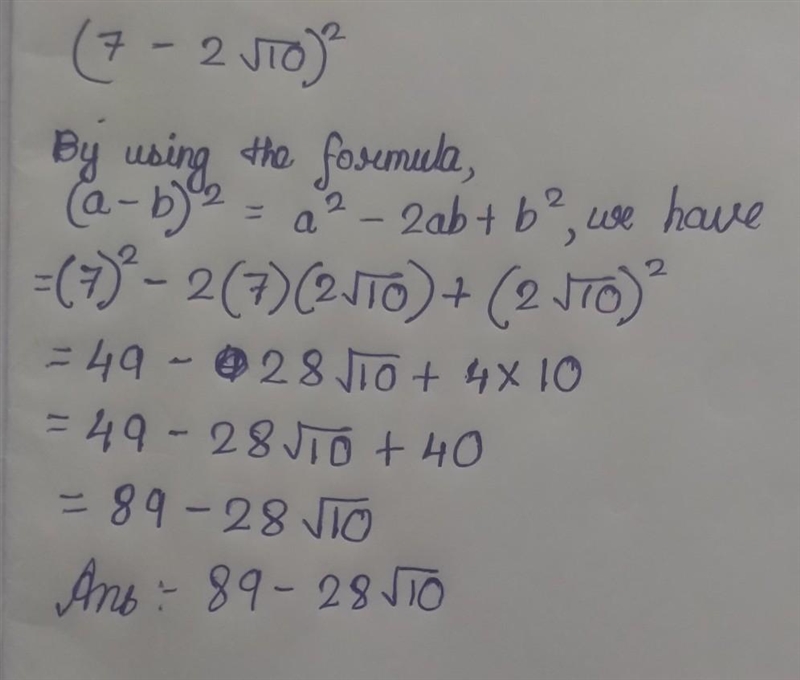 (7 - 2√10)²
By using the formula,
(a-b)² = a² - 2ab + b², we have
=(7)² - 2(7)(2√10) + (2√10)²
= 49 - 28√10 + 4×10
= 49 - 28√10 + 40
= 89 - 28√10
Ans :- 89 - 28√10